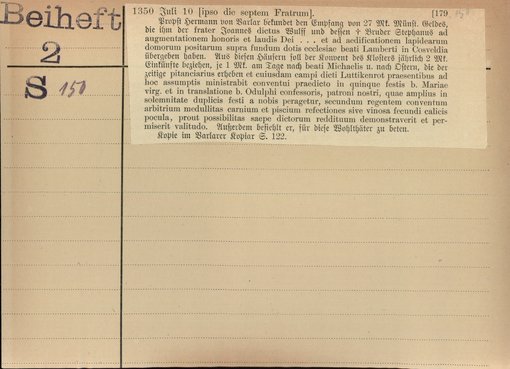 Beiheft
2
S 150
1350 Juli 10 [ipso die septem Fratrum]. [179
Propst Hermann von Varlar bekundet den Empfang von 27 Mk. Münst. Geldes,
die ihm der frater Joannes dictus Wulff und dessen † Bruder Stephanus ad
augmentationem honoris et laudis Dei . . . et ad aedificationem lapidearum
domorum positarum supra fundum dotis ecclesiae beati Lamberti in Cosveldia
übergeben haben. Aus diesen Häusern soll der Konvent des Klosters jährlich 2 Mk.
Einkünfte beziehen, je 1 Mk. am Tage nach beati Michaelis u. nach Ostern, die der
zeitige pitanciarius erheben et cuiusdam campi dicti Luttikenrot praesentibus ad
hoc assumptis ministrabit conventui praedicto in quinque festis b. Mariae
virg. et in translatione b. Odulphi confessoris, patroni nostri, quae amplius in
solemnitate duplicis festi a nobis peragetur, secundum regentem conventum
arbitrium medullitas carnium et piscium refectiones sive vinosa fecundi calicis
pocula, prout possibilitas saepe dictorum reddituum demonstraverit et per-
miserit valitudo. Außerdem befiehlt er, für diese Wohlthäter zu beten.
Kopie im Varlarer Kopiar S. 122.